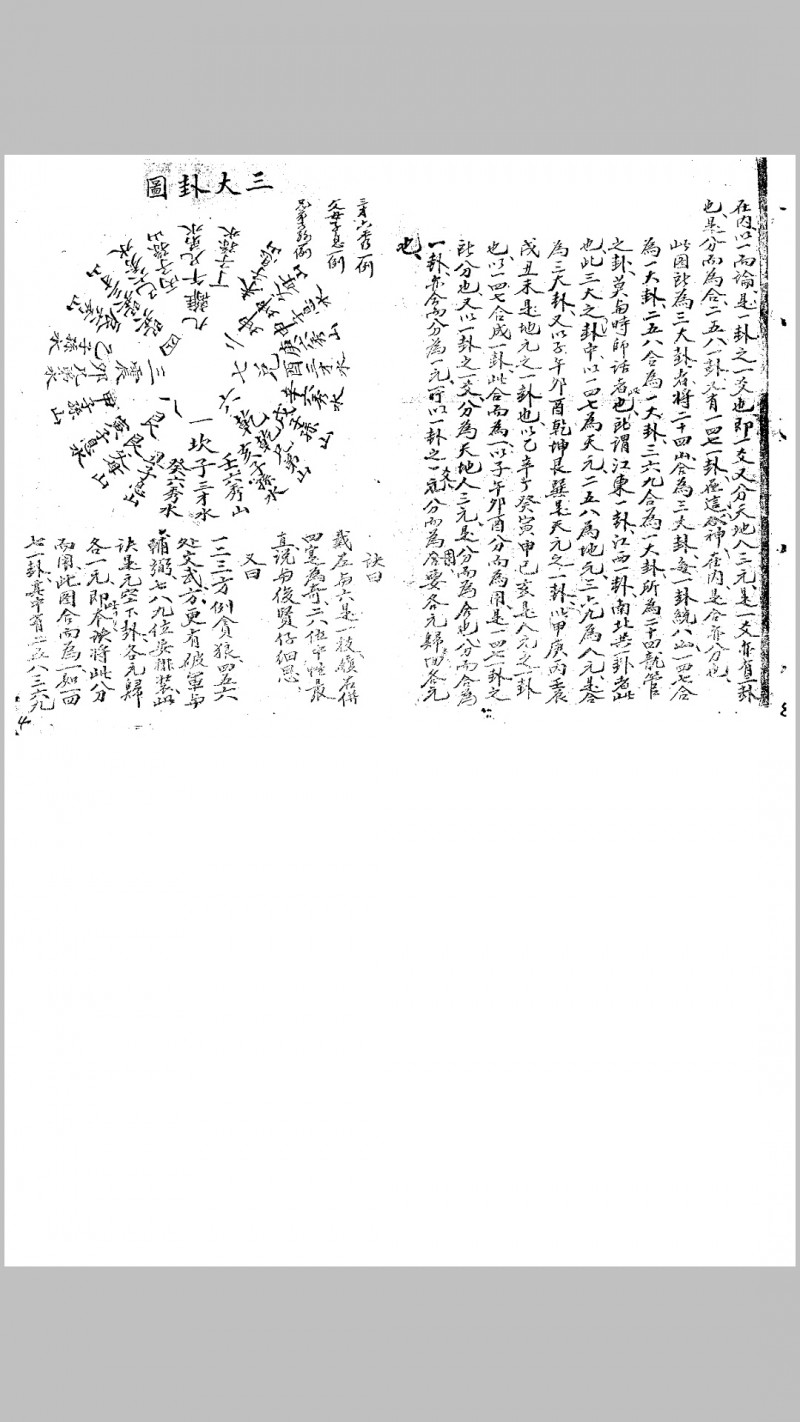 在內以一而論是一卦之一爻也即一爻又分天地人三元是一爻亦有三卦
也是分而為合二五八一卦又有一四七一卦在這於神在內是合亦分也
此圖所為三大卦者將二十四山合為三大卦每一卦統八山一四七合
為一大卦二五八合為一大卦三六九合為一大卦所為二十四龍管
之卦莫與時師話者也所謂江東一卦江西一卦南北共一卦者此
也此三大之卦中以一四七為天元二五八為地元三六九為人元是合
為三大卦又以子午卯酉乾坤艮巽是天元之一卦以甲庚丙壬辰
戌丑未是地元之一卦也以乙辛丁癸寅申巳亥是人元之一卦
也以一四七合成一卦此合而為一以子午卯酉分而為用是一四七卦之
所分也又以一卦之一爻分為天地人三元是分而為分也分而合為
一卦亦合而分為一元所以一卦之一元分而為合要各元歸四各元
也
三大卦圖
三才六秀一例
父母子息一例
兄弟孫一例
九離午兄弟水
丁子孫水
丙子孫山
四
三震卯兄弟水
乙子孫水
甲子孫山
八艮艮父母山
丑子息山
寅子息水
一坎子三才水
癸六秀水
壬六秀山
六乾乾兄弟山
亥子孫水
戌子孫山
七兌酉三才水
辛六秀水
庚六秀山
二坤
訣曰
戴左與六是一枝履右併
四寔為奇二八位中性最
直說與俊賢仔細思
又曰
一二三方例貪狼四五六
处文武方更有破軍與
輔弼七八九位安排莫此
訣是元空下卦各元歸
各一元即本訣將此八分
而用此图合而為一如一四
七一卦其中有二五八三六九
4